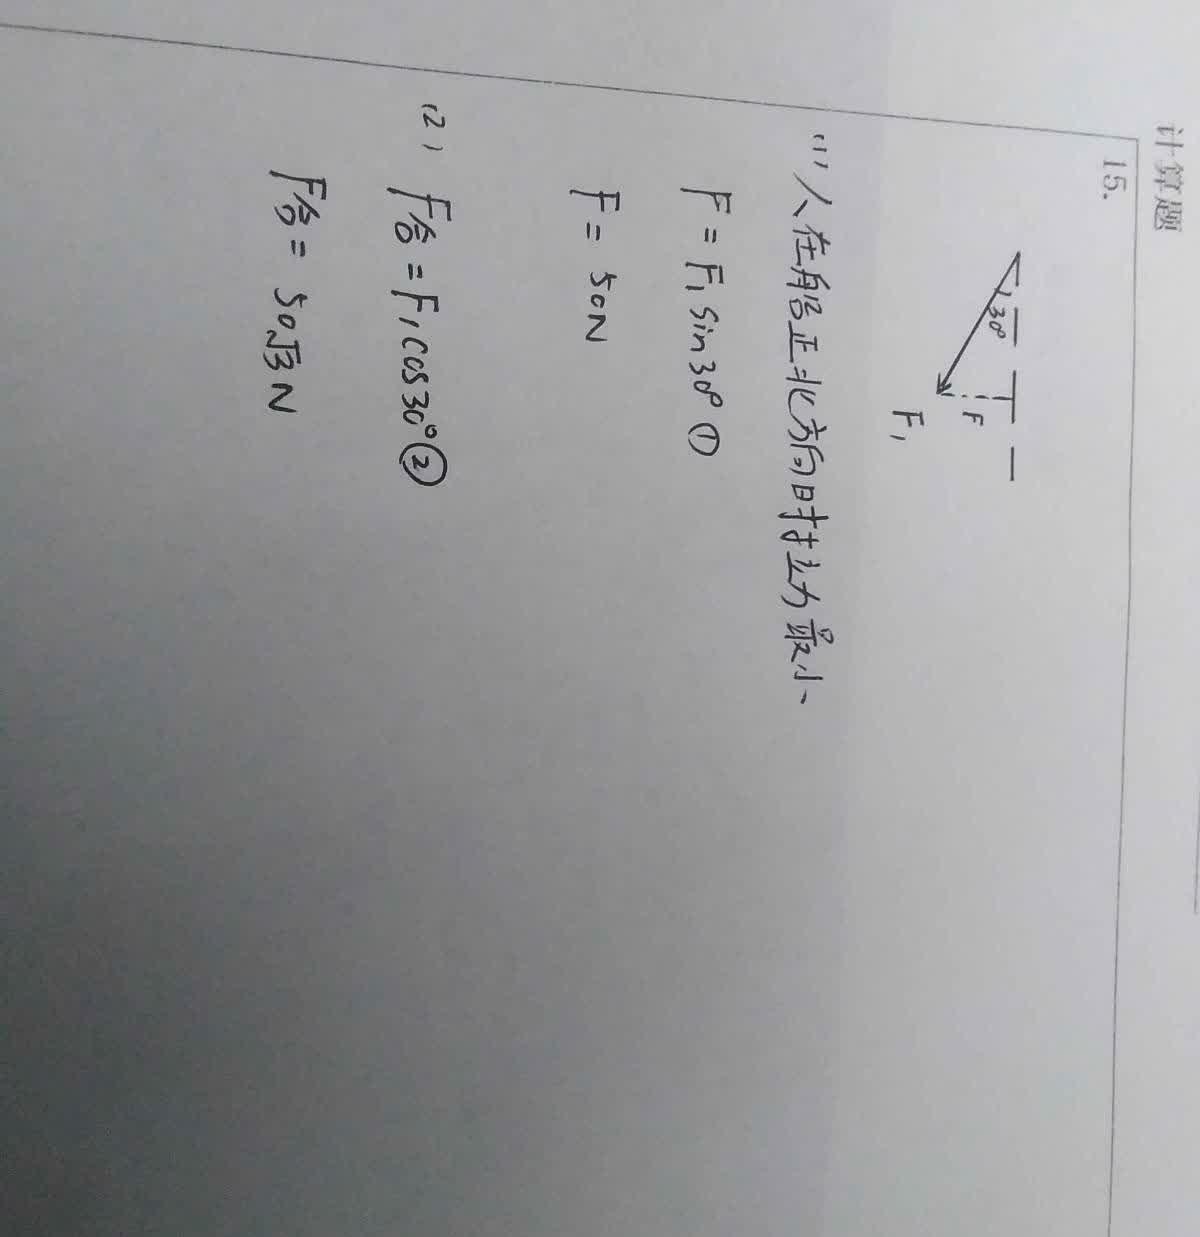 计算题
15.
30°
F
F₁
(1) 人在船正北方向时拉力最小
F = F₁ sin30° ①
F = 50N
(2) F合 = F₁cos30° ②
F合 = 50√3 N